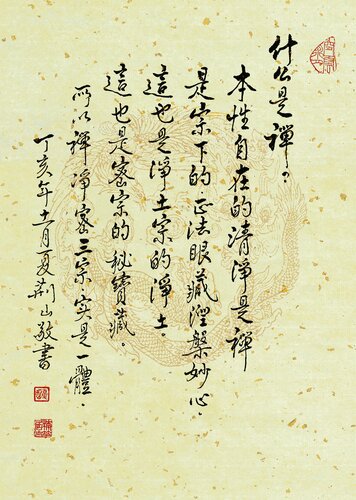 什么是禪？
本性自在的清淨是禪
是宗下的正法眼藏涅槃妙心。
這也是淨土宗的淨土。
這也是密宗的秘寶藏。
所以禪淨密三宗實是一體。
丁亥年十一月夏荆山敬書